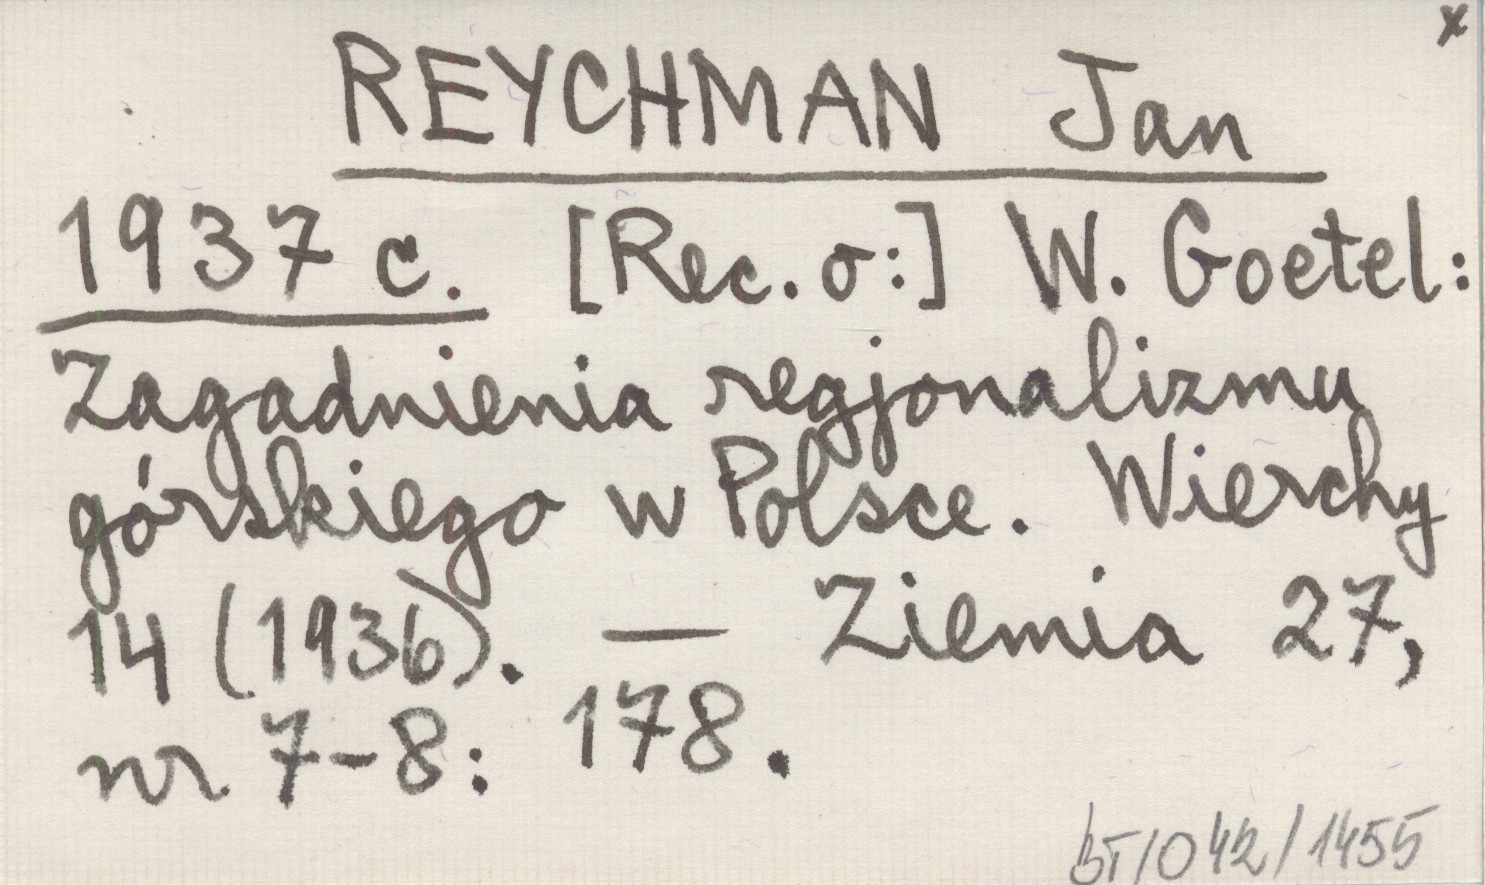 x
REYCHMAN Jan
1937 c. [Rec. o:] W. Goetel:
Zagadnienia regjonalizmu
górskiego w Polsce. Wierchy
14 (1936). — Ziemia 27,
nr 7-8: 178.
BT/042/1455